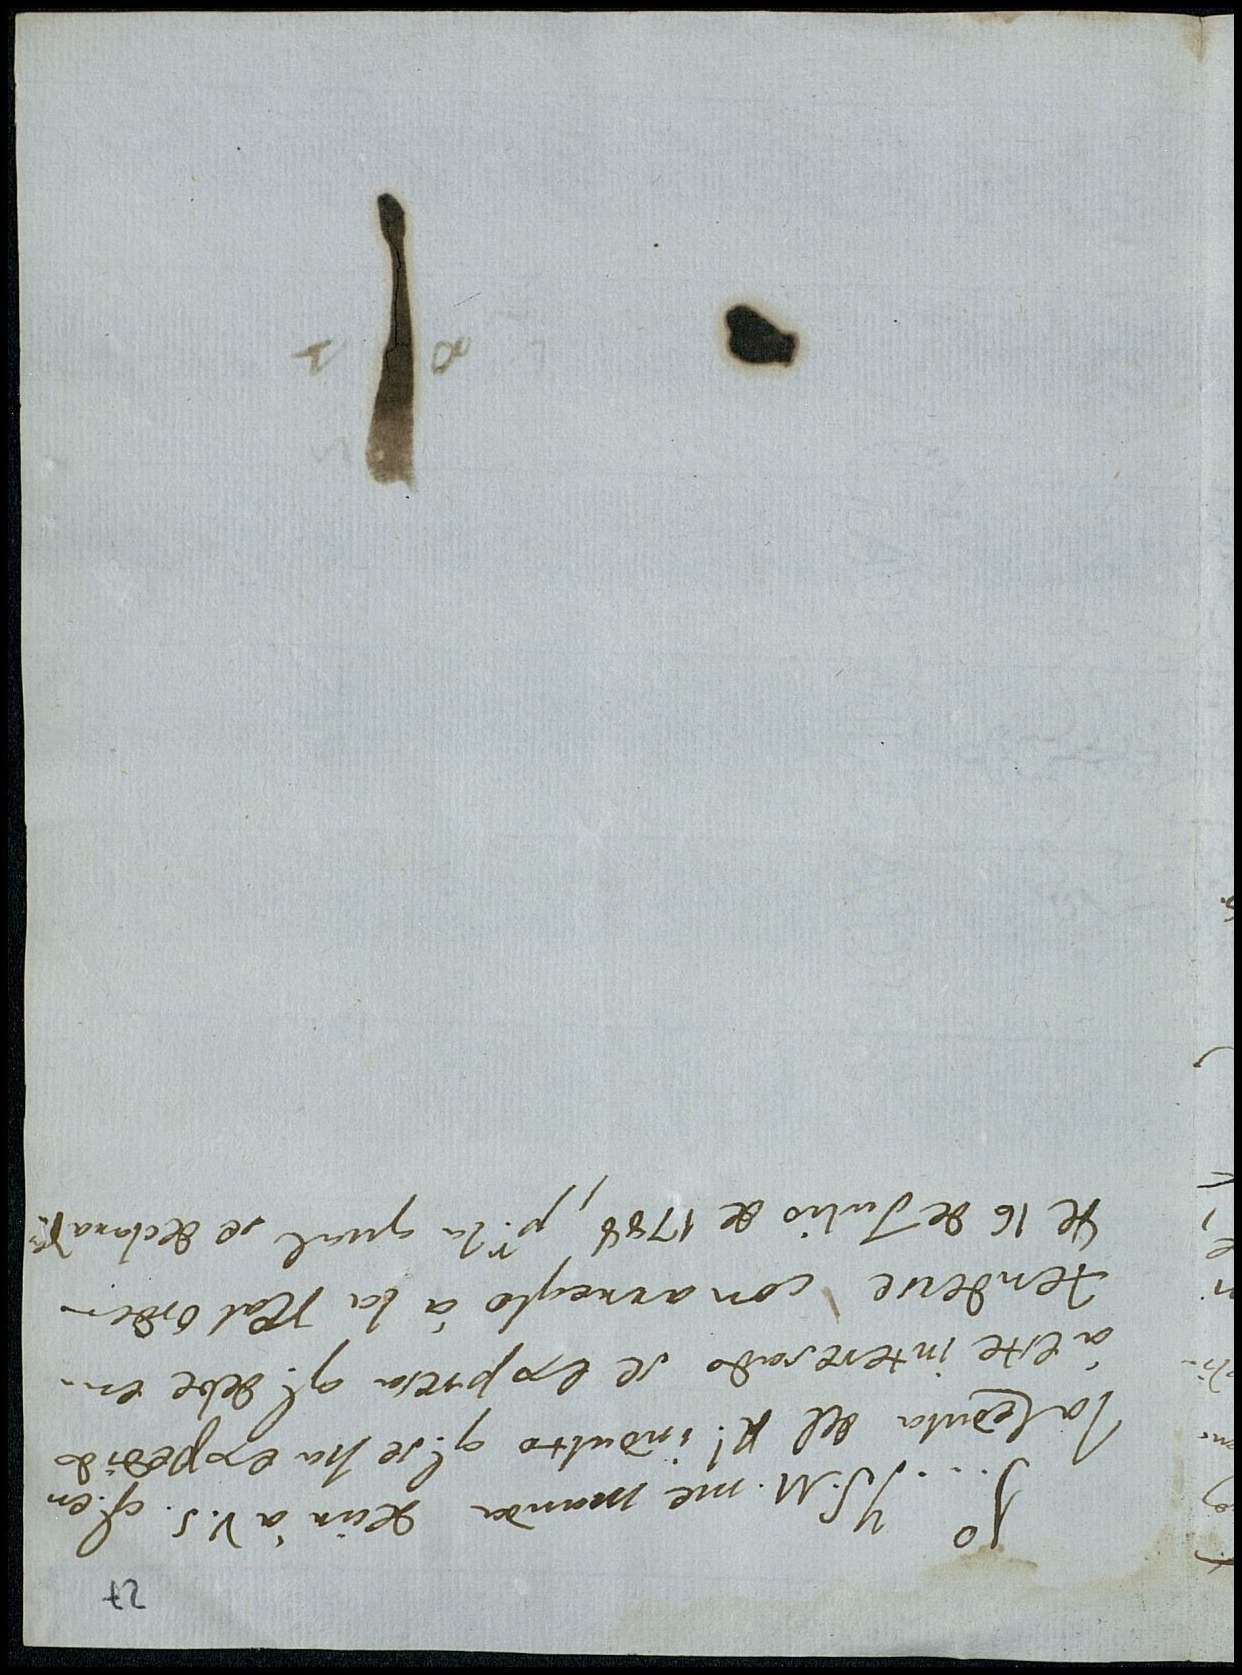 27
J.... Y S.M. me manda decir á V.S. q.e en
la Cedula del R.l indulto q.e se ha expedido
á este interesado se expresa q.e debe en-
tenderse con arreglo á la Real orden
de 16 de Julio de 1788, p.r la qual se declara